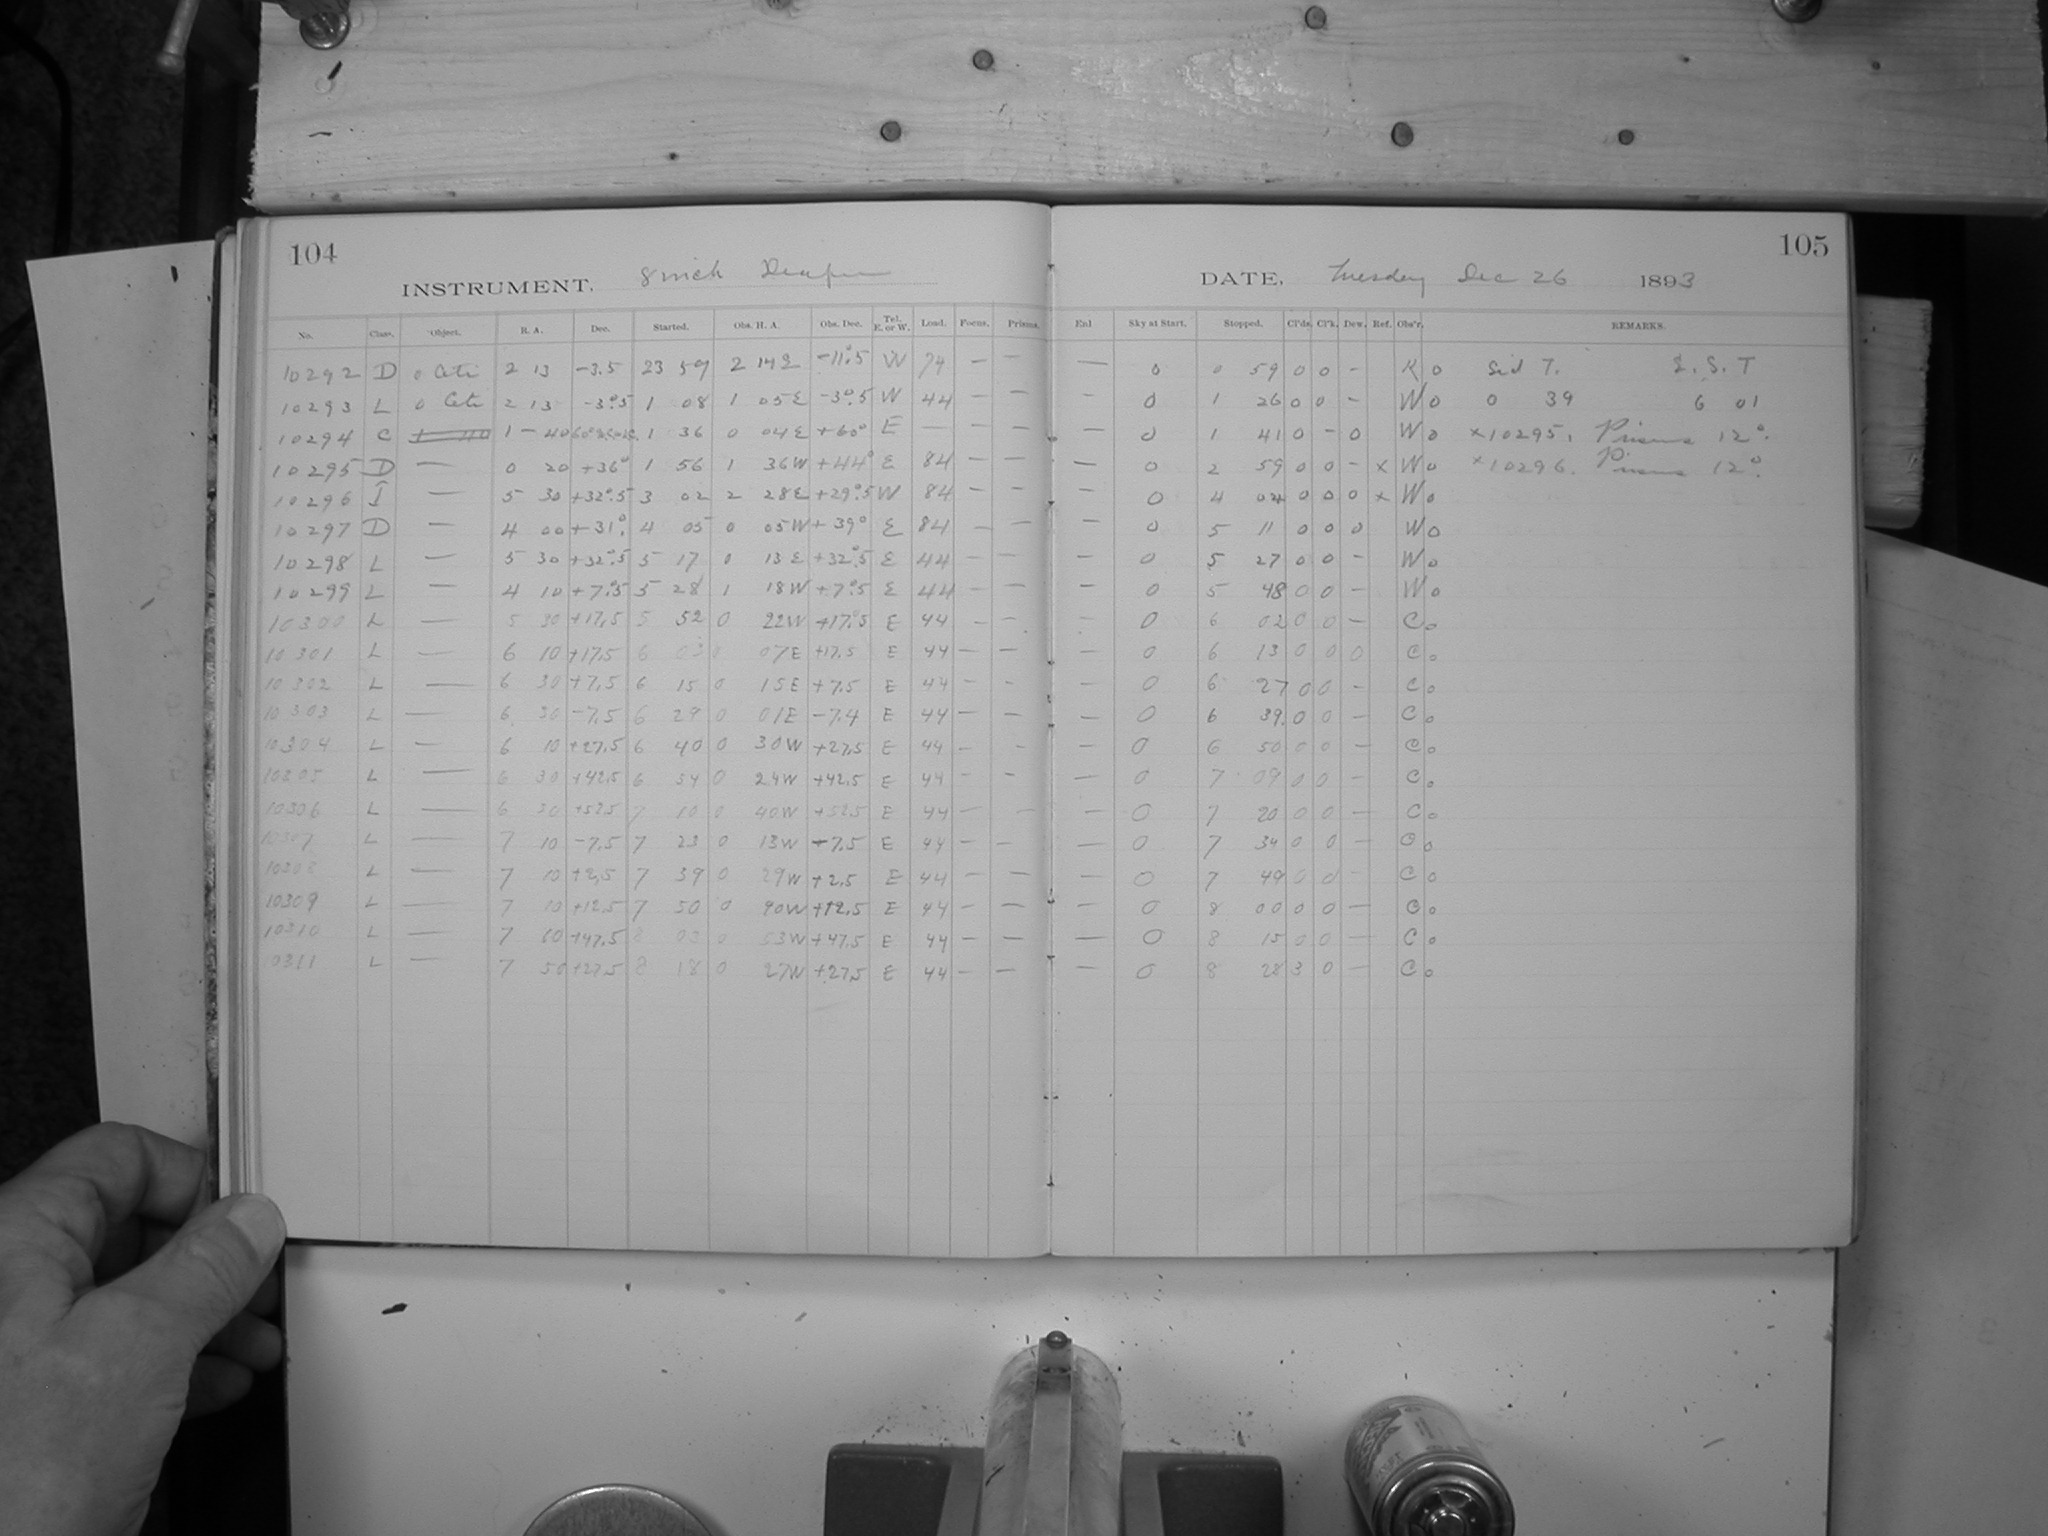 104
105
INSTRUMENT. 8 inch Draper
DATE, Tuesday Dec 26 1893
No. Class. Object. R. A. Dec. Started. Obs. H. A. Obs. Dec. Tel. E. or W. Load. Focus. Prisms. Enl Sky at Start. Stopped. Cl'ds. Cl'k. Dew. Ref. Obs'r. REMARKS.
10292 D o Ceti 2 13 -3.5 23 59 2 14 E -11°.5 W 74 — — — 0 0 59 0 0 - K o Sid T. E. S. T
10293 L o Ceti 2 13 -3°.5 1 08 1 05 E -3°.5 W 44 — — — 0 1 26 0 0 - W o 0 39 6 01
10294 C 1 - 40 1 36 0 04 E +60° E — — — — 0 1 41 0 - 0 W o ×10295, Prisms 12°.
10295 D — 0 20 +36° 1 56 1 36 W +44° E 84 — — — 0 2 59 0 0 - × W o ×10296. Prisms 12°.
10296 I — 5 30 +32°.5 3 02 2 28 E +29°.5 W 84 — — — 0 4 04 0 0 0 × W o
10297 D — 4 00 +31° 4 05 0 05 W +39° E 84 — — — 0 5 11 0 0 0 W o
10298 L — 5 30 +32°.5 5 17 0 13 E +32°.5 E 44 — — — 0 5 27 0 0 - W o
10299 L — 4 10 +7°.5 5 28 1 18 W +7°.5 E 44 — — — 0 5 48 0 0 - W o
10300 L — 5 30 +17.5 5 52 0 22 W +17°.5 E 44 — — — 0 6 02 0 0 - C o
10301 L — 6 10 +17.5 6 03 0 07 E +17.5 E 44 — — — 0 6 13 0 0 0 C o
10302 L — 6 30 +7.5 6 15 0 15 E +7.5 E 44 — — — 0 6 27 0 0 - C o
10303 L — 6 30 -7.5 6 29 0 01 E -7.4 E 44 — — — 0 6 39 0 0 - C o
10304 L — 6 10 +27.5 6 40 0 30 W +27.5 E 44 — — — 0 6 50 0 0 - C o
10305 L — 6 30 +42.5 6 54 0 24 W +42.5 E 44 — — — 0 7 09 0 0 - C o
10306 L — 6 30 +52.5 7 10 0 40 W +52.5 E 44 — — — 0 7 20 0 0 - C o
10307 L — 7 10 -7.5 7 23 0 13 W -7.5 E 44 — — — 0 7 34 0 0 - C o
10308 L — 7 10 +2.5 7 39 0 29 W +2.5 E 44 — — — 0 7 49 0 0 - C o
10309 L — 7 10 +12.5 7 50 0 40 W +12.5 E 44 — — — 0 8 00 0 0 - C o
10310 L — 7 10 +47.5 8 03 0 53 W +47.5 E 44 — — — 0 8 15 0 0 - C o
10311 L — 7 50 +27.5 8 18 0 27 W +27.5 E 44 — — — 0 8 28 3 0 - C o